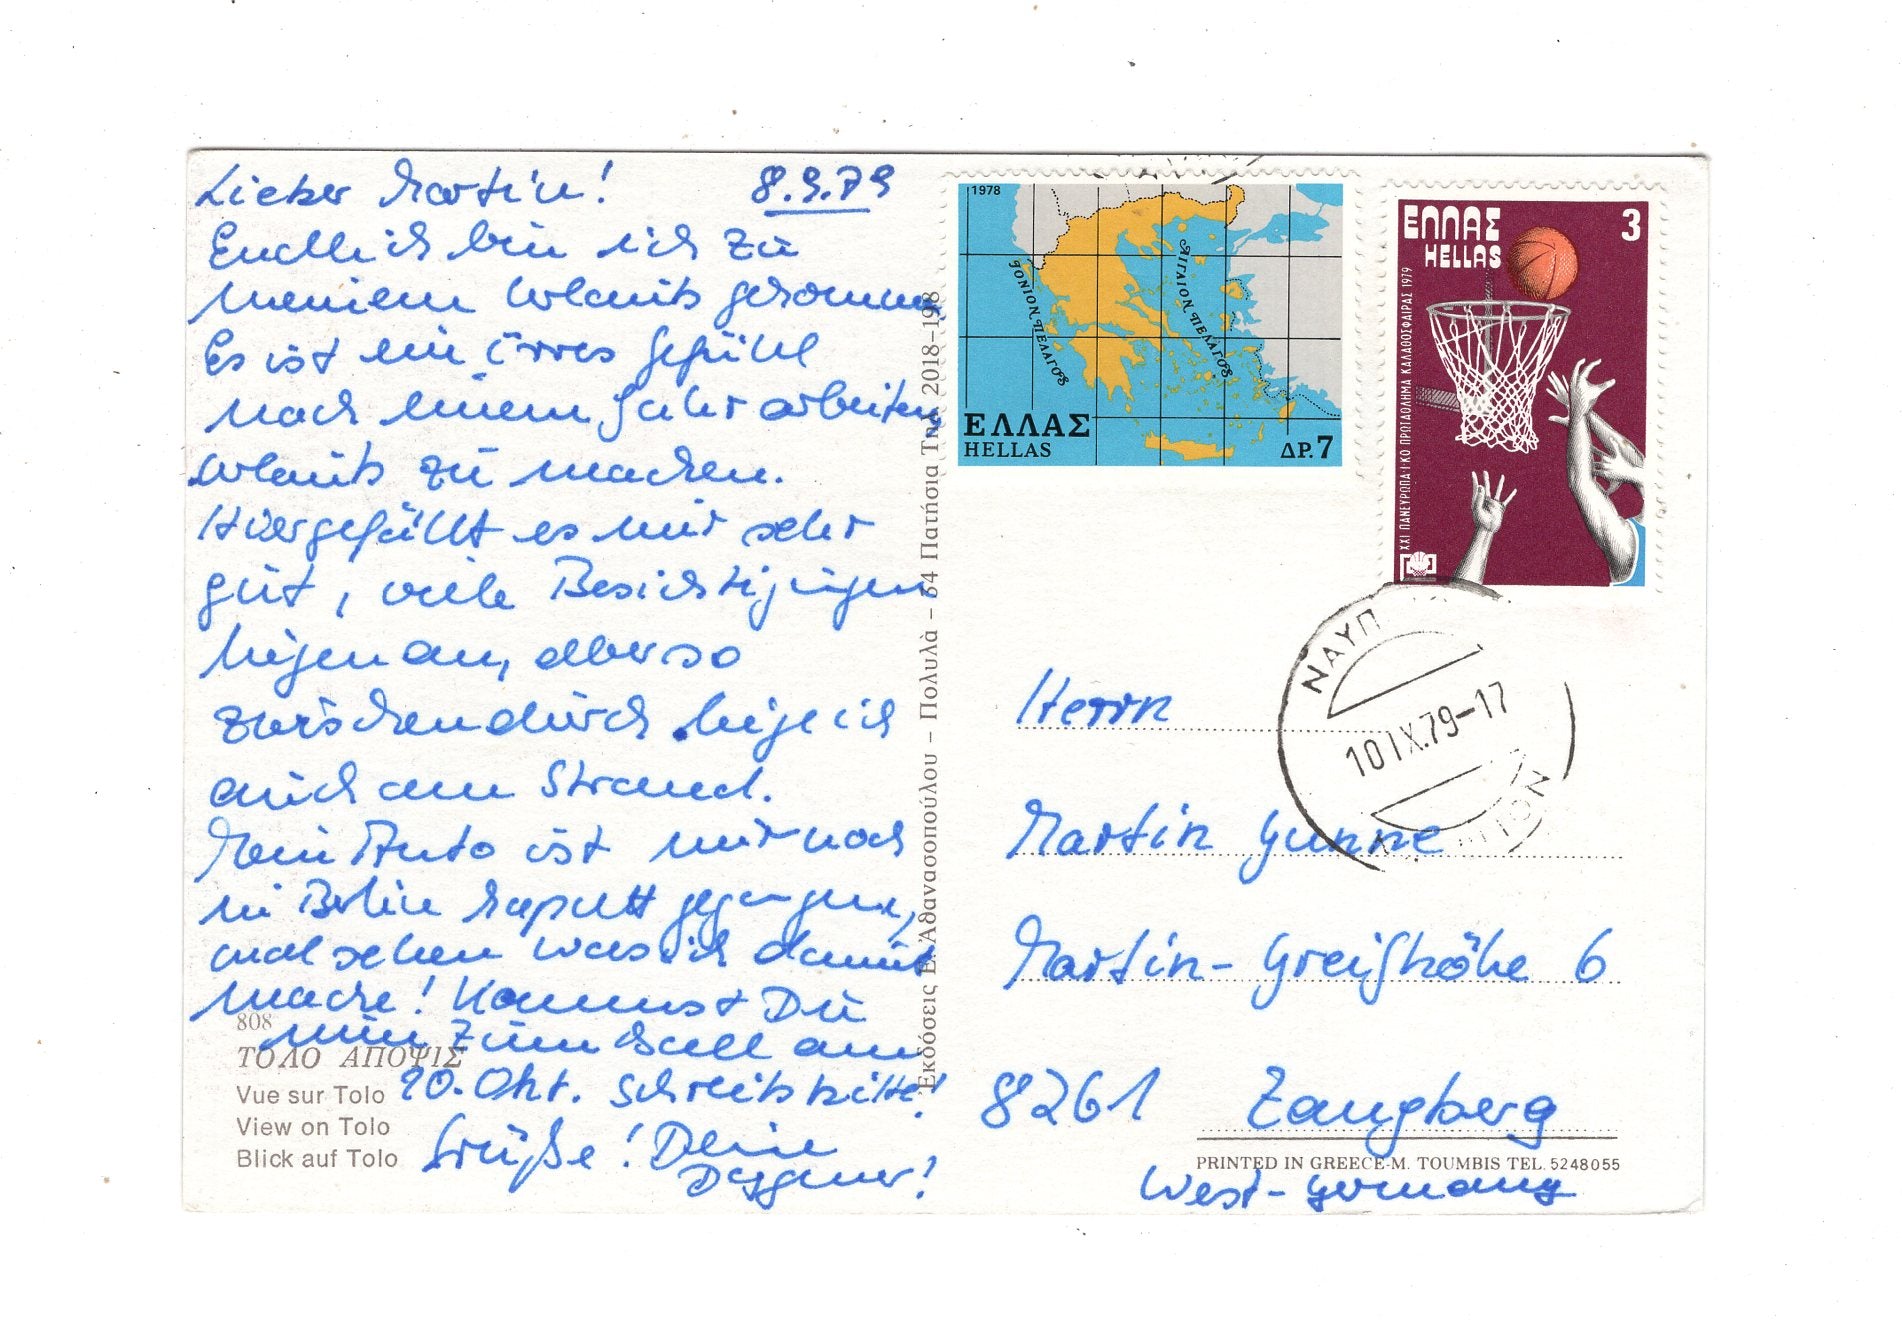 Lieber Martin! 8.9.79
Endlich bin ich zu
meinem Urlaub gekommen
Es ist ein irres Gefühl
nach einem Jahr arbeiten
Urlaub zu machen.
Hier gefällt es mir sehr
gut, viele Besichtigungen
liegen an, aber so
zwischendurch liege ich
auch am Strand.
Mein Auto ist mir noch
in Berlin kaputt gegangen,
mal sehen was ich damit
mache! Kommst Du
nun zum Ball am
20. Okt. Schreib bitte!
Grüße! Deine
808
ΤΟΛΟ ΑΠΟΨΙΣ
Vue sur Tolo
View on Tolo
Blick auf Tolo
Ἐκδόσεις Ε. Ἀθανασοπούλου – Πολυλᾶ – 64 Πατήσια Τηλ. 2018-198
1978
ΙΟΝΙΟΝ ΠΕΛΑΓΟΣ
ΑΙΓΑΙΟΝ ΠΕΛΑΓΟΣ
ΕΛΛΑΣ
HELLAS
ΔΡ. 7
ΕΛΛΑΣ
HELLAS
3
XXI ΠΑΝΕΥΡΩΠΑΪΚΟ ΠΡΩΤΑΘΛΗΜΑ ΚΑΛΑΘΟΣΦΑΙΡΑΣ 1979
ΝΑΥΠ
10 IX.79-17
Herrn
Martin Gunne
Martin-Greifhöhe 6
8261 Zangberg
PRINTED IN GREECE-M. TOUMBIS TEL. 5248055
West-Germany